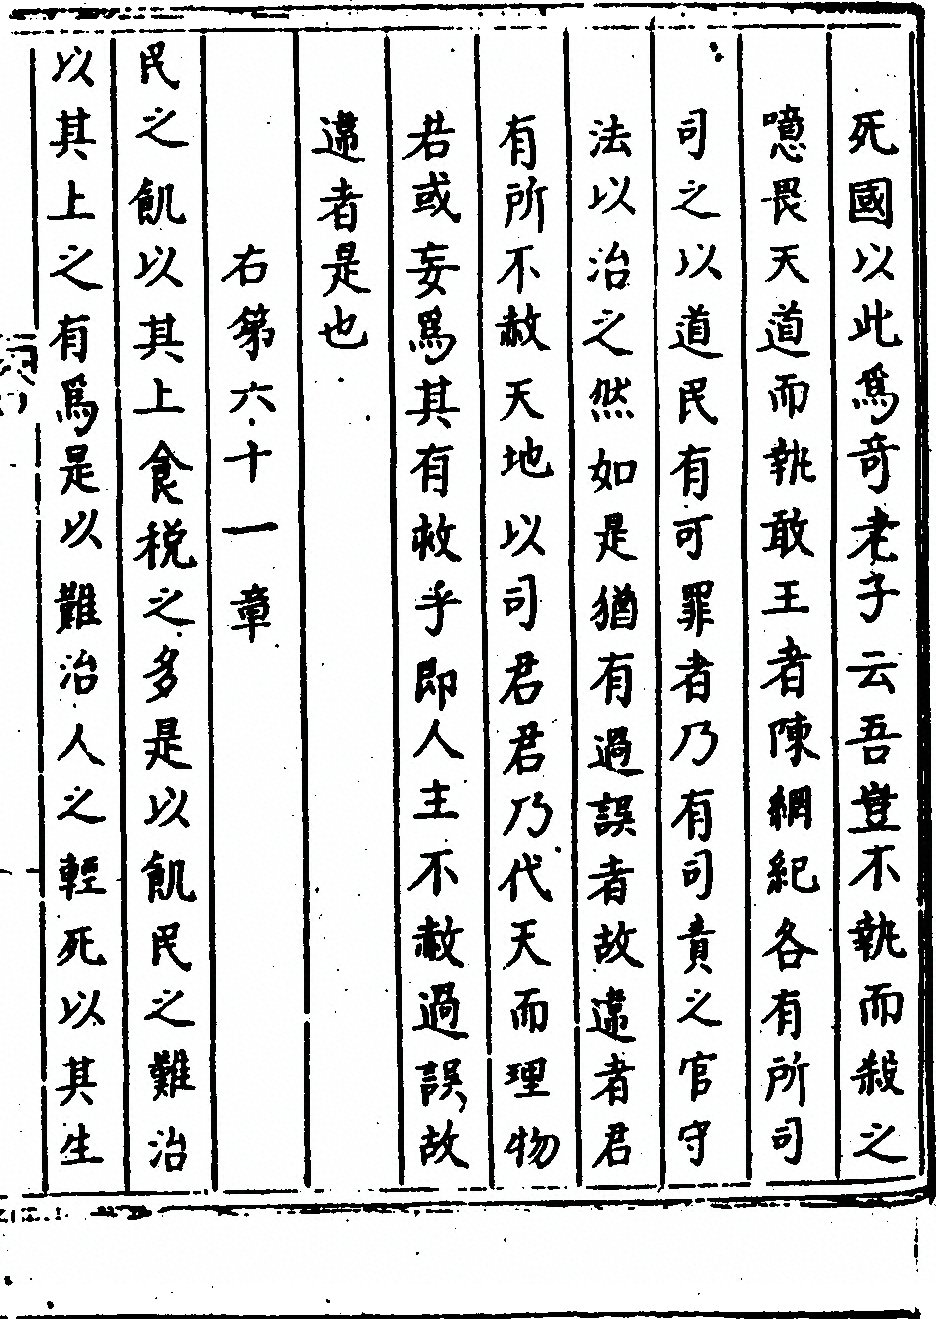 死國以此爲奇老子云吾豈不執而殺之
噫畏天道而執敢王者陳綱紀各有所司
司之以道民有可罪者乃有司責之官守
法以治之然如是猶有過誤者故違者君
有所不赦天地以司君君乃代天而理物
若或妄爲其有赦乎即人主不赦過誤故
違者是也
右第六十一章
民之飢以其上食税之多是以飢民之難治
以其上之有爲是以難治人之輕死以其生